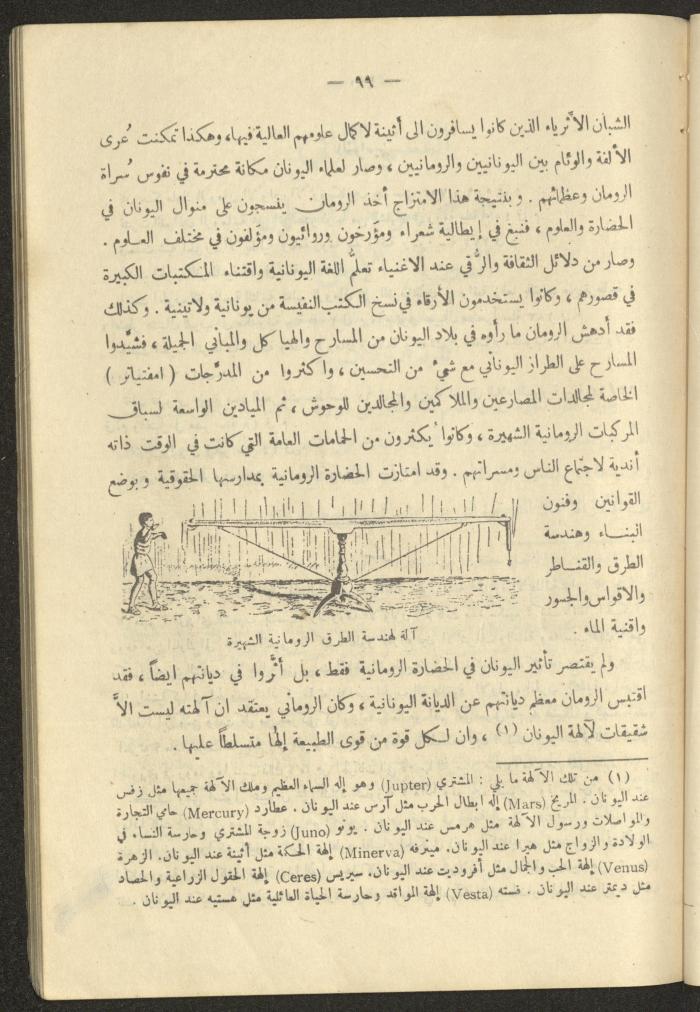 — ٩٩ —
الشبان الأثرياء الذين كانوا يسافرون الى أثينة لاكمال علومهم العالية فيها، وهكذا تمكنت عُرى
الألفة والوئام بين اليونانيين والرومانيين ، وصار لعلماء اليونان مكانة محترمة في نفوس سُراة
الرومان وعظمائهم . وبنتيجة هذا الامتزاج أخذ الرومان ينسجون على منوال اليونان في
الحضارة والعلوم ، فنبغ في إيطالية شعراء ومؤرخون وروائيون ومؤلفون في مختلف العلوم .
وصار من دلائل الثقافة والرُقي عند الاغنياء تعلمُّ اللغة اليونانية واقتناء المكتبات الكبيرة
في قصورهم ، وكانوا يستخدمون الأرقاء في نسخ الكتب النفيسة من يونانية ولاتينية . وكذلك
فقد أدهش الرومان ما رأوه في بلاد اليونان من المسارح والهياكل والمباني الجميلة ، فشيَّدوا
المسارح على الطراز اليوناني مع شيء من التحسين ، واكثروا من المدرَّجات ( امفتياتر )
الخاصة لمجالدات المصارعين والملاكمين والمجالدين للوحوش ، ثم الميادين الواسعة لسباق
المركبات الرومانية الشهيرة ، وكانوا يُكثرون من الحمامات العامة التي كانت في الوقت ذاته
أندية لاجتماع الناس ومسراتهم . وقد امتازت الحضارة الرومانية بمدارسها الحقوقية وبوضع
القوانين وفنون
البناء وهندسة
الطرق والقناطر
والاقواس والجسور
واقنية الماء .
آلة لهندسة الطرق الرومانية الشهيرة
ولم يقتصر تأثير اليونان في الحضارة الرومانية فقط ، بل أثَّروا في ديانتهم ايضاً ، فقد
اقتبس الرومان معظم ديانتهم عن الديانة اليونانية ، وكان الروماني يعتقد ان آلهته ليست الاَّ
شقيقات لآلهة اليونان (١) ، وان لكل قوة من قوى الطبيعة إلهًا متسلطاً عليها .
(١) من تلك الآلهة ما يلي : المشتري (Jupter) وهو إله السماء العظيم وملك الآلهة جميعها مثل زفس
عند اليونان . المريخ (Mars) إله ابطال الحرب مثل آرس عند اليونان . عطارد (Mercury) حامي التجارة
والمواصلات ورسول الآلهة مثل هرمس عند اليونان . يونو (Juno) زوجة المشتري وحارسة النساء في
الولادة والزواج مثل هيرا عند اليونان. ميترفه (Minerva) إلهة الحكمة مثل أثينة عند اليونان. الزهرة
(Venus) إلهة الحب والجمال مثل أفروديت عند اليونان. سيريس (Ceres) إلهة الحقول الزراعية والحصاد
مثل ديمتر عند اليونان . فسته (Vesta) إلهة المواقد وحارسة الحياة العائلية مثل هستيه عند اليونان .